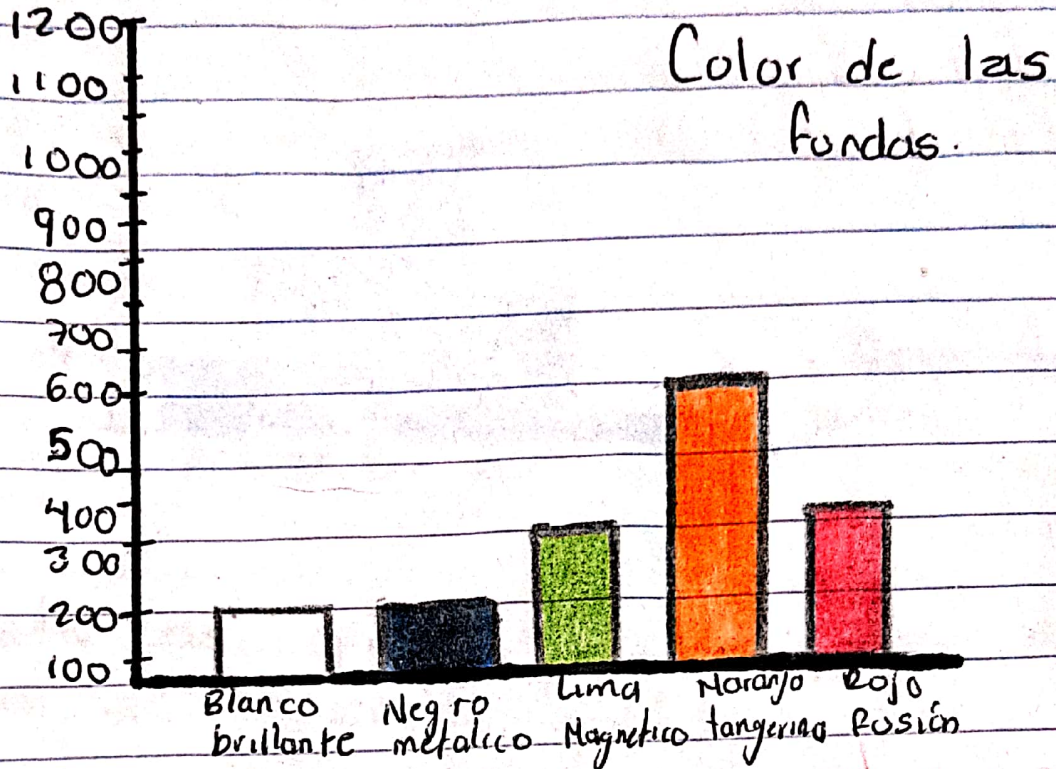 Color de las
fundas.
1200
1100
1000
900
800
700
600
500
400
300
200
100
Blanco
brillante
Negro
metalico
Lima
Magnetico
Naranja
tangerina
Rojo
Fusión